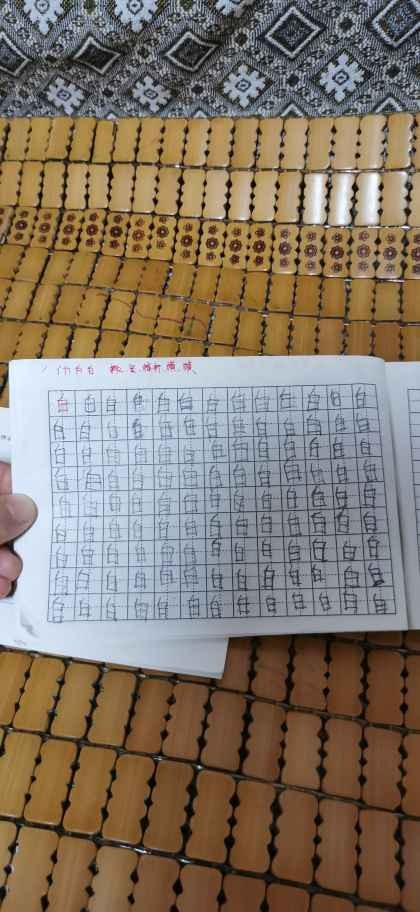 白 白 撇.竖.横折.横.横
白白白白白白白白白白白白白
白白白白白白白白白白白白白
白白白白白白白白白白白白白
白白白白白白白白白白白白白
白白白白白白白白白白白白白
白白白白白白白白白白白白白
白白白白白白白白白白白白白
白白白白白白白白白白白白白
白白白白白白白白白白白白白